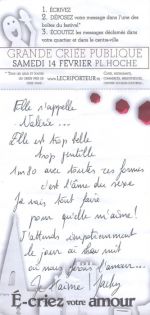 1. ÉCRIVEZ
2. DÉPOSEZ votre message dans l'une des
boîtes du festival*
3. ÉCOUTEZ les messages déclamés dans
votre quartier et dans le centre-ville
GRANDE CRIÉE PUBLIQUE
SAMEDI 14 FÉVRIER PL. HOCHE
WWW.LECRIPORTEUR.COM
Elle s'appelle
Valérie...
Elle est trop belle
trop gentille
1m80 avec toutes ces formes
c'est l'âme du sexe
Je vais tout faire
pour qu'elle m'aime!
J'attends impatiemment
le jour où
où nous ferons l'amour...
Je t'aime
É-criez votre amour